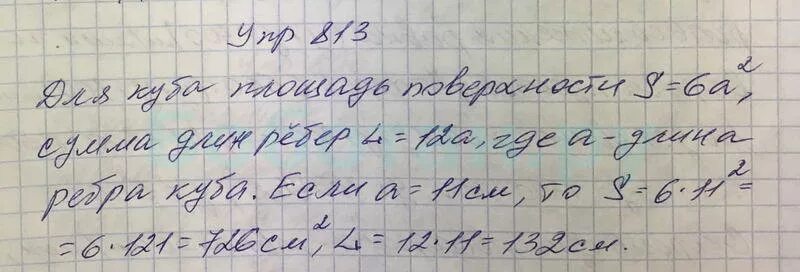 Упр 813
Для куба площадь поверхности S=6a²,
сумма длин рёбер L=12a, где a-длина
ребра куба. Если a=11см, то S=6·11²=
=6·121=726см², L=12·11=132см.